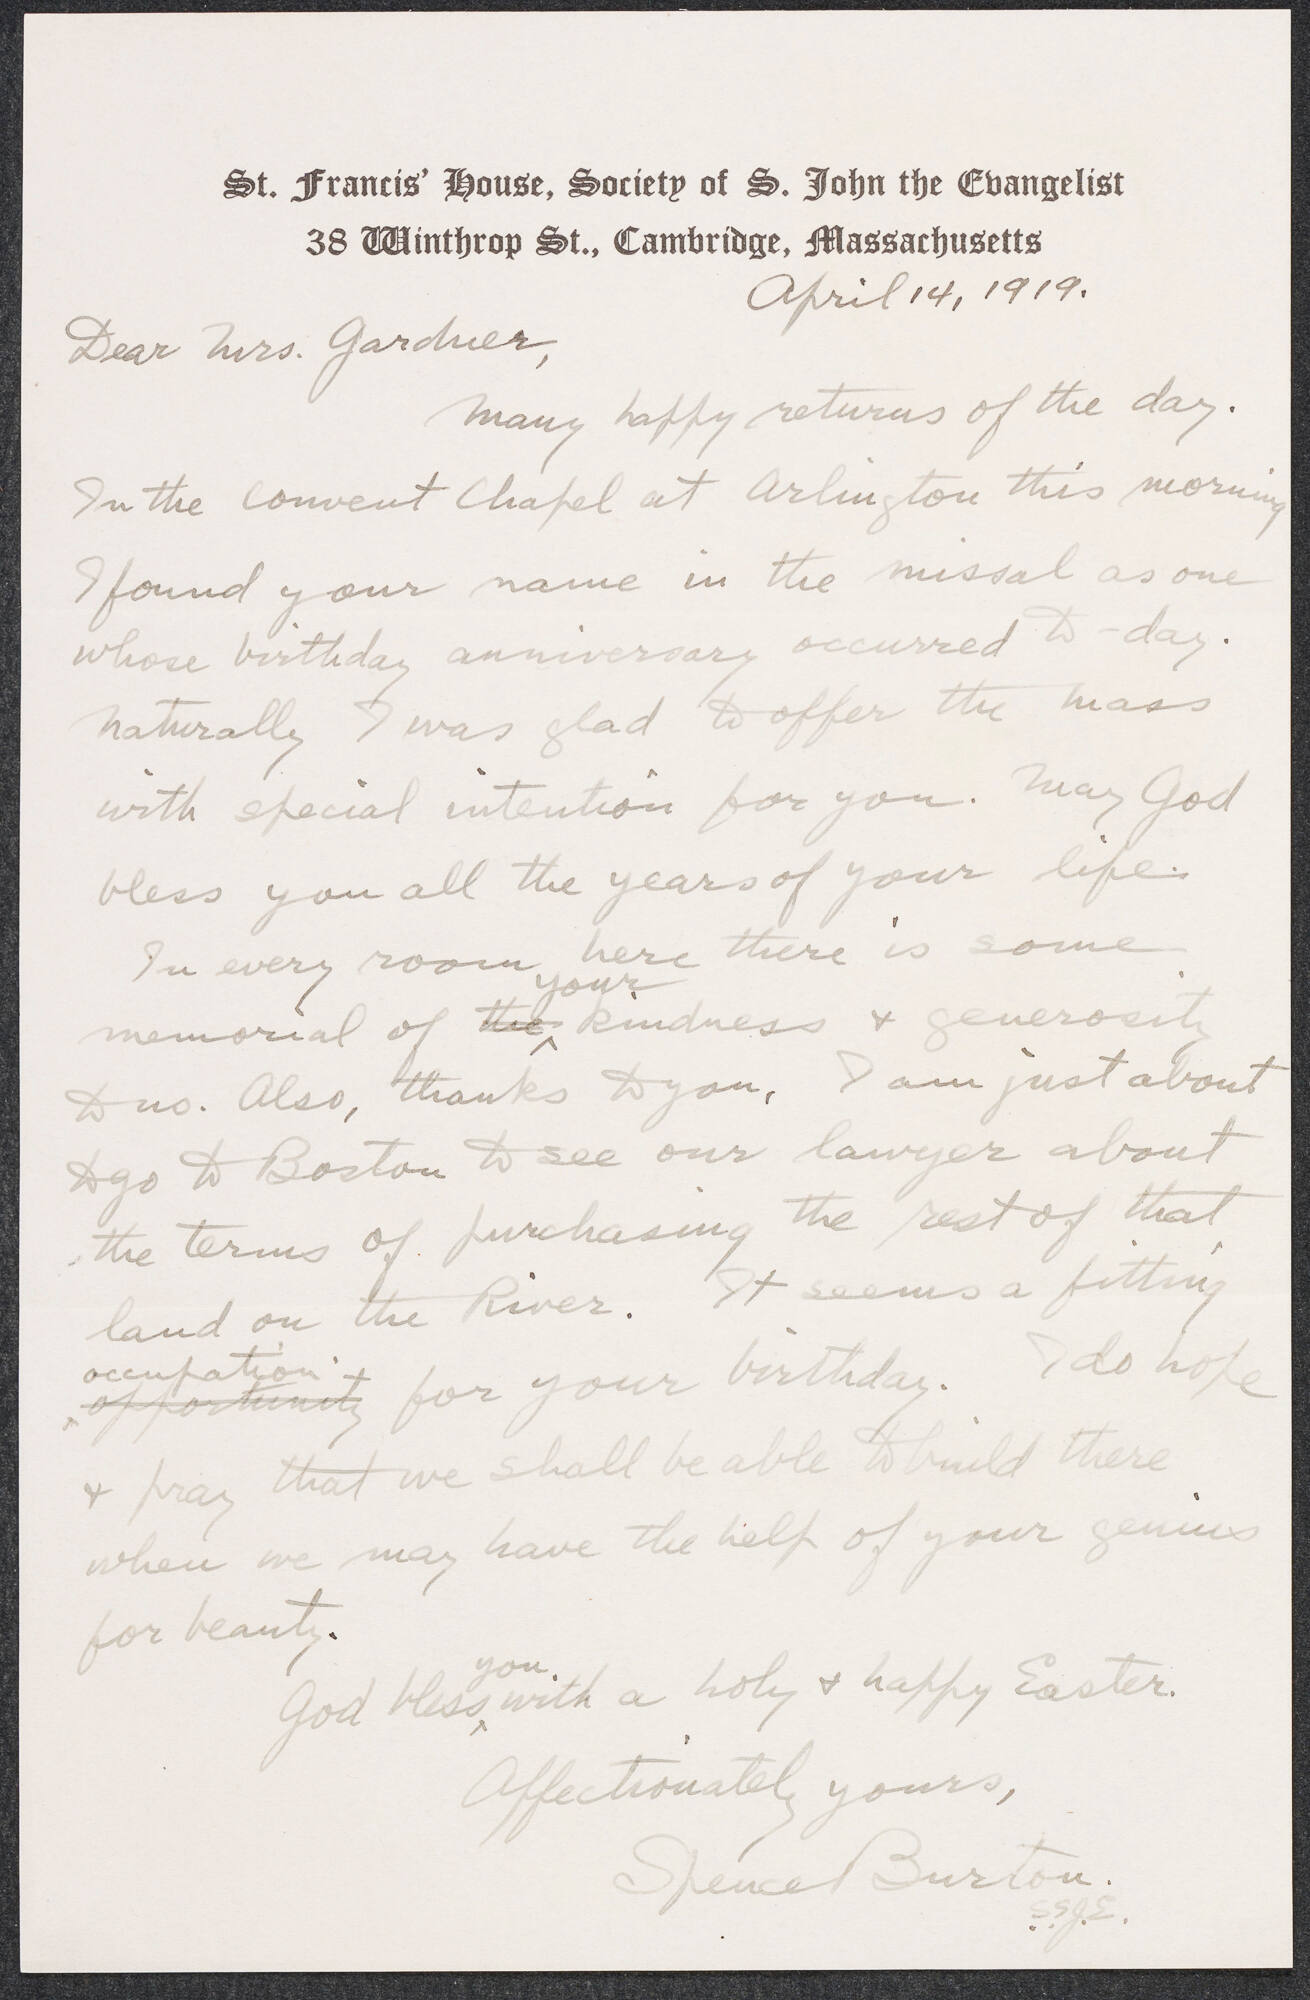 St. Francis' House, Society of S. John the Evangelist
38 Winthrop St., Cambridge, Massachusetts
April 14, 1919.
Dear Mrs. Gardner,
Many happy returns of the day.
In the convent Chapel at Arlington this morning
I found your name in the missal as one
whose birthday anniversary occurred to-day.
Naturally I was glad to offer the mass
with special intention for you. May God
bless you all the years of your life.
In every room here there is some
your
memorial of the kindness & generosity
to us. Also, thanks to you, I am just about
to go to Boston to see our lawyer about
the terms of purchasing the rest of that
land on the River. It seems a fitting
occupation
opportunity for your birthday. I do hope
& pray that we shall be able to build there
when we may have the help of your genius
for beauty.
you
God bless with a holy & happy Easter.
Affectionately yours,
Spence Burton.
S.S.J.E.